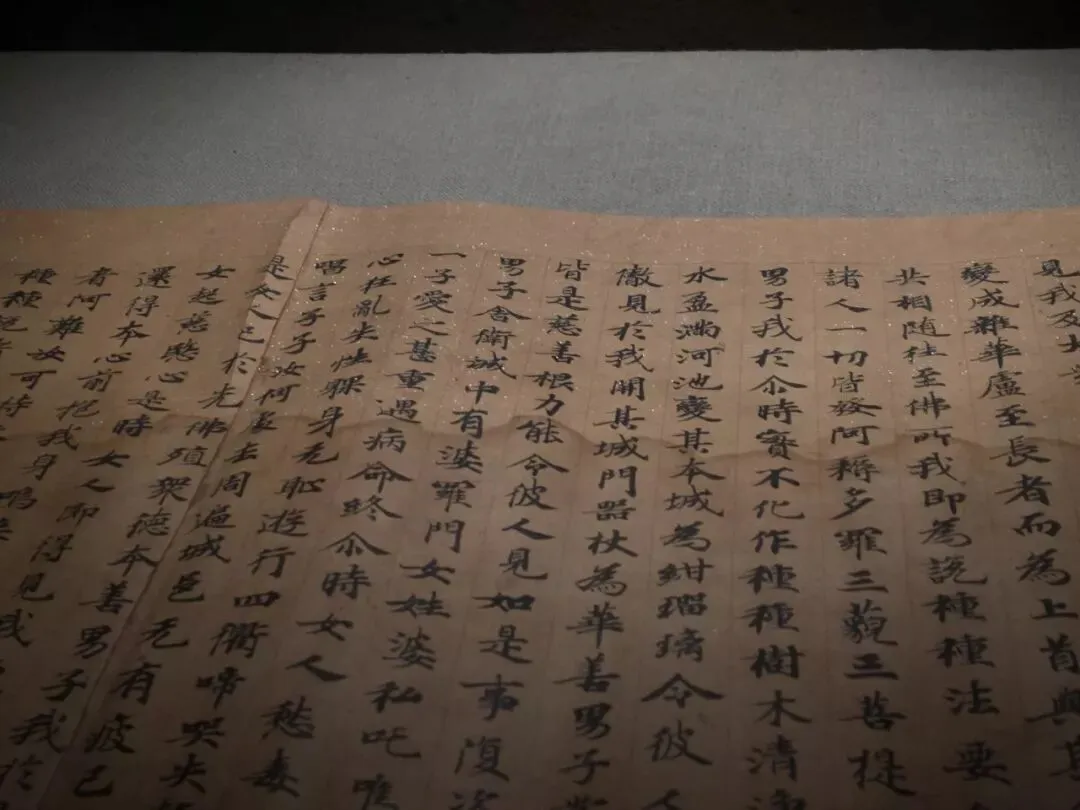 見我及大衆
變成雜華盧至長者而為上首與其
共相随往至佛所我即為説種種法要
諸人一切皆發阿耨多羅三藐三菩提
男子我於尒時實不化作種種樹木清淨
水盈滿河池變其本城為紺瑠璃令彼人
徹見於我開其城門器杖為華善男子
皆是慈善根力能令彼人見如是事復
男子舍衛城中有婆羅門女姓婆私吒唯
一子愛之甚重遇病命終尒時女人愁毒
心狂亂失性躶身无恥遊行四衢啼哭失
唱言子子汝何處去周遍城邑无有疲已
是女人已於先佛殖衆德本善男子我於
女起慈愍心是時女人即得見我
還得本心前抱我身嗚
者阿難汝可持
種種